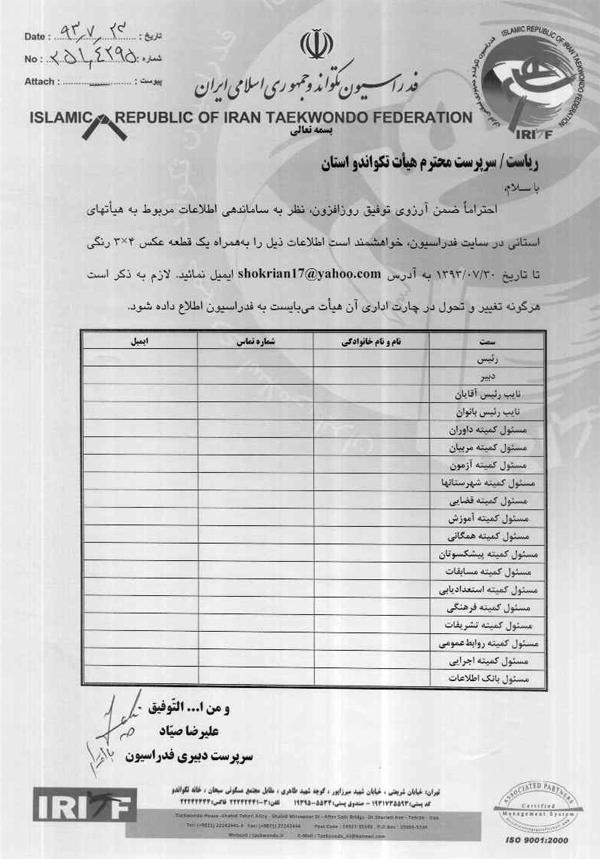 Date : ۹۳,۷,۲۳ تاریخ :
No : شماره :
Attach : پیوست :
فدراسیون تکواندو جمهوری اسلامی ایران
ISLAMIC REPUBLIC OF IRAN TAEKWONDO FEDERATION
ISLAMIC REPUBLIC OF IRAN TAEKWONDO FEDERATION
IRITF
بسمه تعالی
ریاست / سرپرست محترم هیأت تکواندو استان
با سلام،
احتراماً ضمن آرزوی توفیق روزافزون، نظر به ساماندهی اطلاعات مربوط به هیأتهای
استانی در سایت فدراسیون، خواهشمند است اطلاعات ذیل را به‌همراه یک قطعه عکس ۴×۳ رنگی
تا تاریخ ۱۳۹۳/۰۷/۳۰ به آدرس shokrian17@yahoo.com ایمیل نمائید. لازم به ذکر است
هرگونه تغییر و تحول در چارت اداری آن هیأت می‌بایست به فدراسیون اطلاع داده شود.
سمت نام و نام خانوادگی شماره تماس ایمیل
رئیس
دبیر
نایب رئیس آقایان
نایب رئیس بانوان
مسئول کمیته داوران
مسئول کمیته مربیان
مسئول کمیته آزمون
مسئول کمیته شهرستانها
مسئول کمیته قضایی
مسئول کمیته آموزش
مسئول کمیته همگانی
مسئول کمیته پیشکسوتان
مسئول کمیته مسابقات
مسئول کمیته استعدادیابی
مسئول کمیته فرهنگی
مسئول کمیته تشریفات
مسئول کمیته روابط عمومی
مسئول کمیته اجرایی
مسئول بانک اطلاعات
و من ا... التوفیق
علیرضا صیّاد
سرپرست دبیری فدراسیون
تهران: خیابان شریعتی، خیابان شهید میرزاپور، کوچه شهید طاهری، مقابل مجتمع مسکونی سبحان، خانه تکواندو
کد پستی: ۱۹۳۱۷۳۵۵۹۳ - صندوق پستی: ۵۵۳۴-۱۹۳۹۵ تلفن: ۳-۲۲۲۴۲۴۴۱ فاکس: ۲۲۲۴۲۴۴۴
IRITF
ASSOCIATED PARTNERS
Certified
Management System
ISO 9001:2000